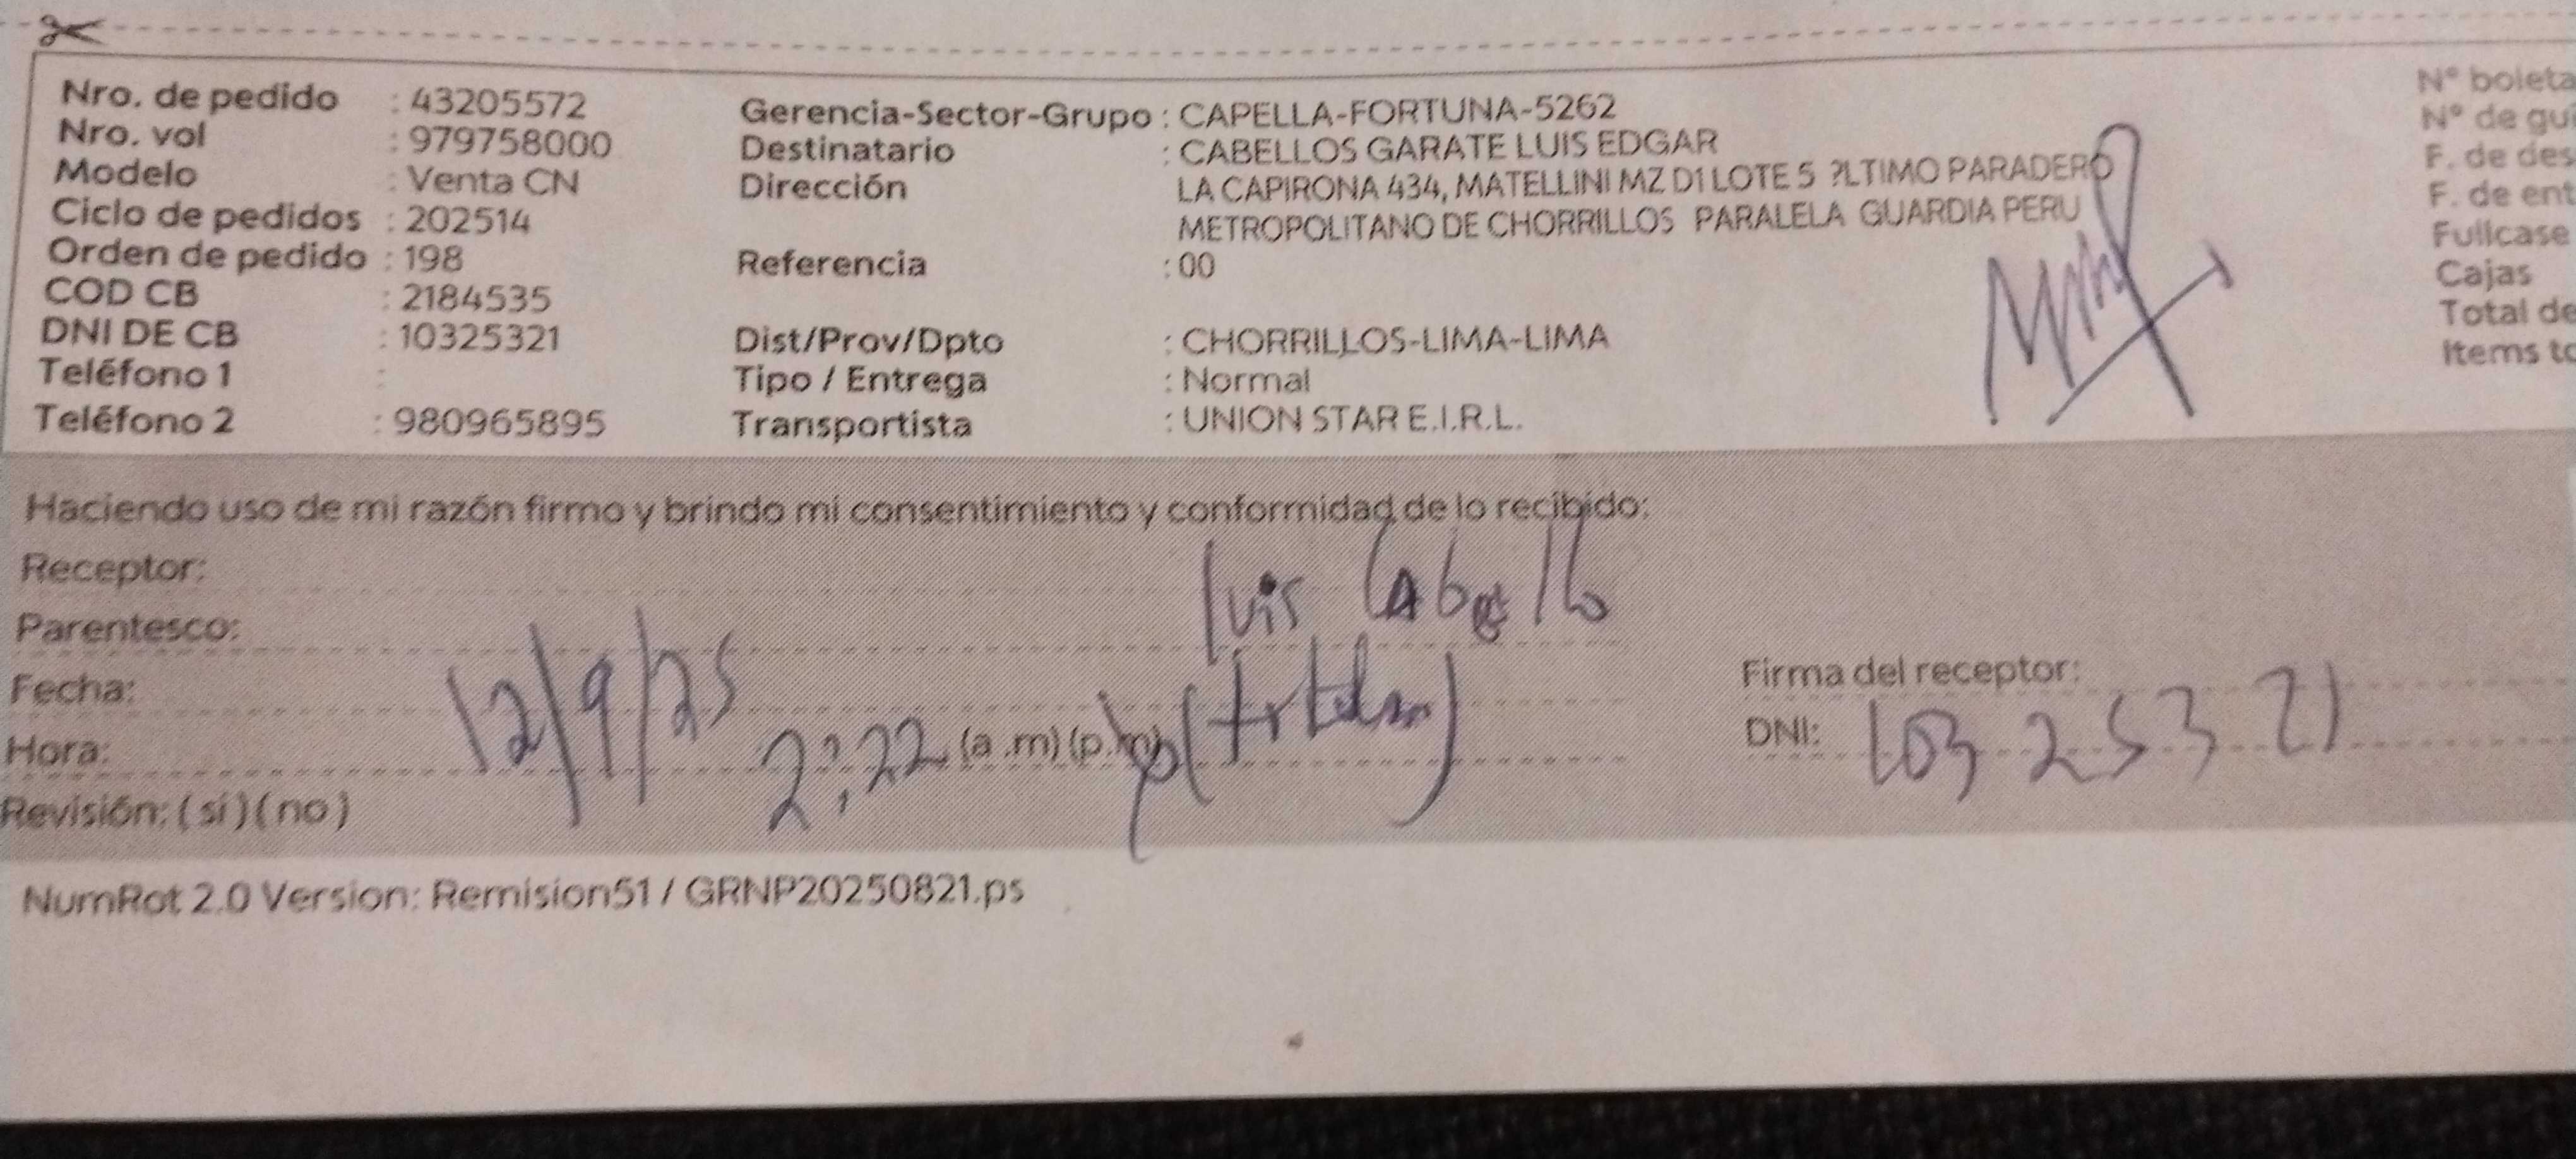 Nro. de pedido : 43205572
Nro. vol : 979758000
Modelo : Venta CN
Ciclo de pedidos : 202514
Orden de pedido : 198
COD CB : 2184535
DNI DE CB : 10325321
Teléfono 1 :
Teléfono 2 : 980965895
Gerencia-Sector-Grupo : CAPELLA-FORTUNA-5262
Destinatario : CABELLOS GARATE LUIS EDGAR
Dirección LA CAPIRONA 434, MATELLINI MZ D1 LOTE 5 ?LTIMO PARADERO
METROPOLITANO DE CHORRILLOS PARALELA GUARDIA PERU
Referencia : 00
Dist/Prov/Dpto : CHORRILLOS-LIMA-LIMA
Tipo / Entrega : Normal
Transportista : UNION STAR E.I.R.L.
N° boleta
N° de gui
F. de des
F. de ent
Fullcase
Cajas
Total de
Items to
Haciendo uso de mi razón firmo y brindo mi consentimiento y conformidad de lo recibido:
Receptor: luis Cabello
Parentesco:
Fecha: 12/9/25
Hora: 2:22 (a .m) (p.m)
Revisión: ( sí ) ( no )
Firma del receptor:
DNI: 10325321
NumRot 2.0 Version: Remision51 / GRNP20250821.ps